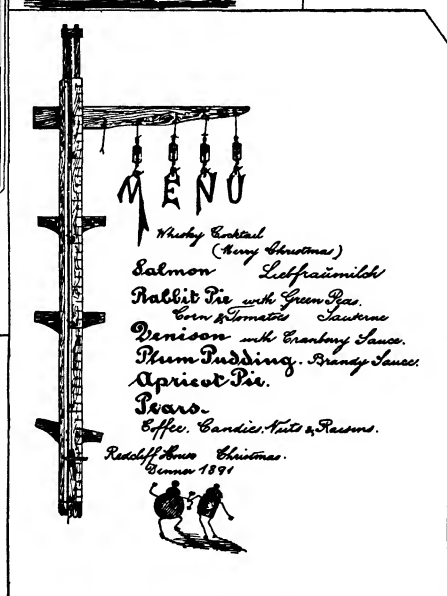 MENU
Whisky Cocktail
(Merry Christmas)
Salmon Liebfraümilch
Rabbit Pie with Green Peas.
Corn & Tomatoes Sauterne
Venison with Cranbury Sauce.
Plum Pudding. Brandy Sauce.
Apricot Pie.
Pears.
Coffee. Candies, Nuts & Raisens.
Redcliff House Christmas.
Dinner 1891